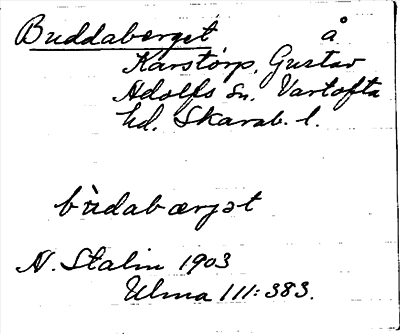 Buddaberget å
Karstorp, Gustav
Adolfs sn. Vartofta
hd. Skarab. l.
bùdabærjət
N. Stalin 1903
Ulma 111:383.